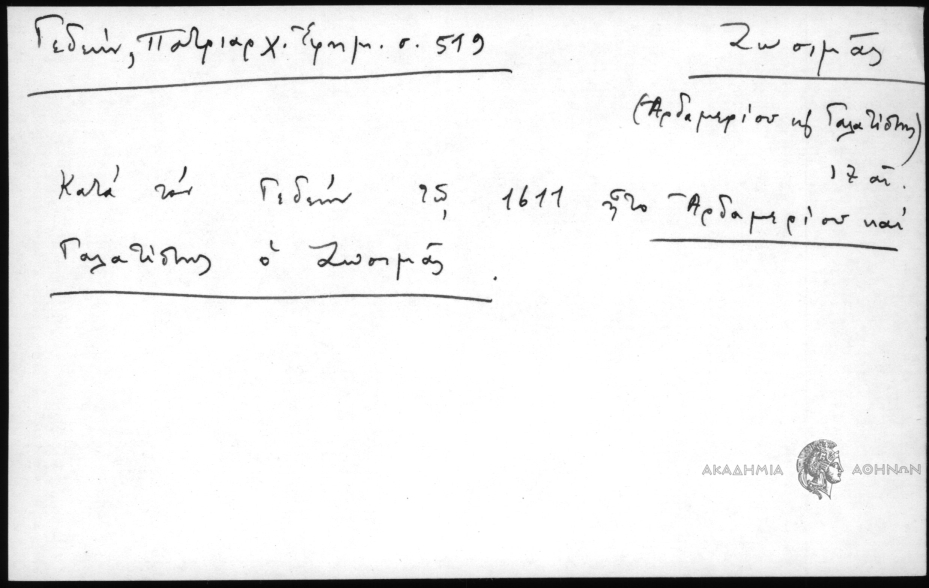 Γεδεών, Πατριαρχ. Ἐφημ. σ. 519
Ζωσιμᾶς
(Ἀρδαμερίου κ Γαλατίστης)
17 αἰ.
Κατά τόν Γεδεών τῷ 1611 ἦτο Ἀρδαμερίου καί
Γαλατίστης ὁ Ζωσιμᾶς.
ΑΚΑΔΗΜΙΑ ΑΘΗΝΩΝ